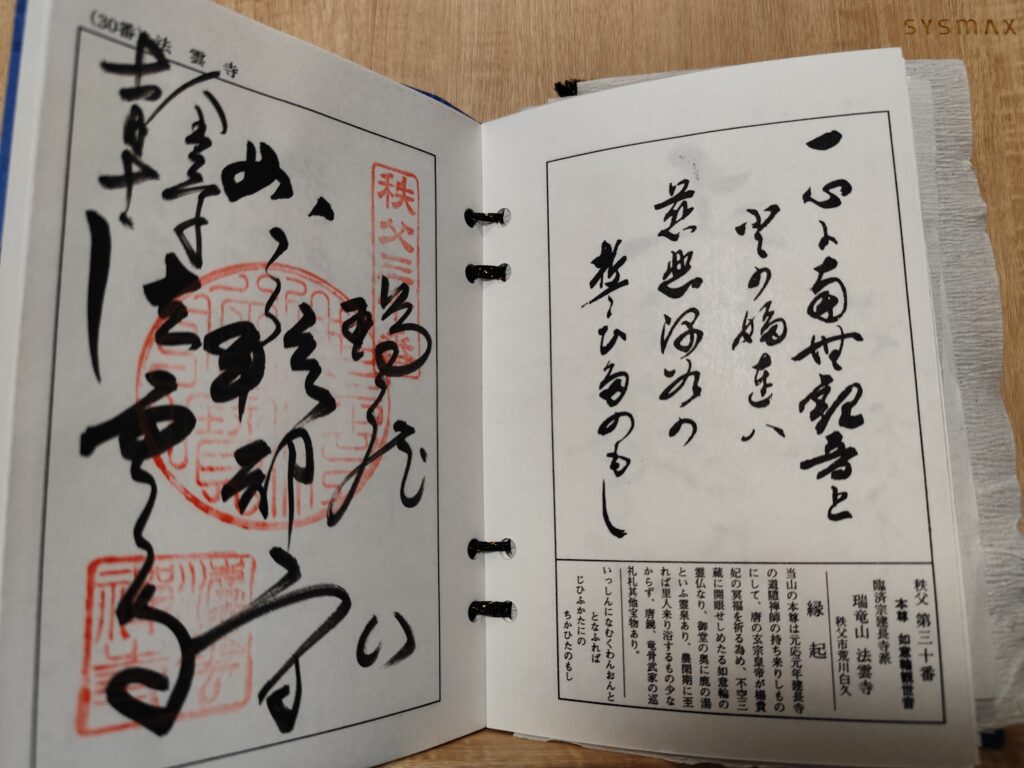 一心に南無観音と
慈悲深谷の
誓ひ多のもし
秩父 第三十番
本尊 如意輪観世音
臨済宗建長寺派
瑞竜山 法雲寺
秩父市荒川白久
縁起
当山の本尊は元応元年建長寺
の道隠禅師の持ち来りしもの
にして、唐の玄宗皇帝が楊貴
妃の冥福を祈る為め、不空三
蔵に開眼せしめたる如意輪の
霊仏なり、御堂の奥に鹿の湯
といふ霊泉あり、農閑期に至
れば里人来り浴するもの少な
からず、唐鏡、竜骨武家の巡
礼札其他宝物あり。
いっしんになむくわんおんと
となふれば
じひふかたにの
ちかひたのもし
(30番) 法雲寺
秩父三
法雲寺
SYSMAX